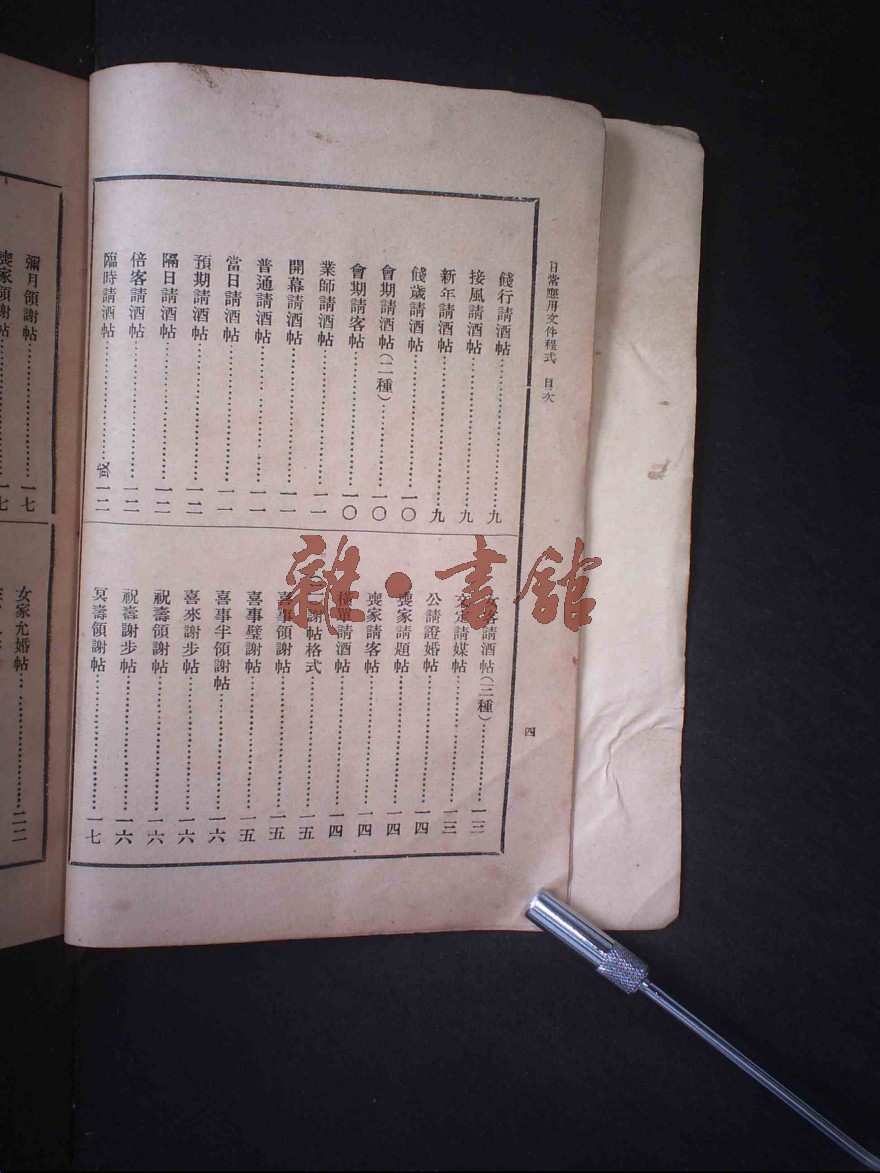 日常應用文件程式　目次
四
餞行請酒帖……………九
接風請酒帖……………九
新年請酒帖……………九
餞歲請酒帖……………一〇
會期請酒帖(二種)……………一〇
會期請客帖……………一〇
業師請酒帖……………一一
開幕請酒帖……………一一
普通請酒帖……………一一
當日請酒帖……………一一
預期請酒帖……………一二
隔日請酒帖……………一二
倍客請酒帖……………一二
臨時請酒帖……………或一二
女客請酒帖(三種)……………一三
文定請媒帖……………一三
公請證婚帖……………一四
喪家請題帖……………一四
喪家請客帖……………一四
請酒帖……………一四
謝帖格式……………一五
喜事領謝帖……………一五
喜事璧謝帖……………一五
喜事半領謝帖……………一六
喜來謝步帖……………一六
祝壽領謝帖……………一六
祝壽謝步帖……………一六
冥壽領謝帖……………一七
彌月領謝帖……………一七
喪家領謝帖……………一七
女家允婚帖……………二二
雜·書館